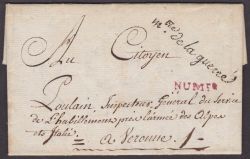 m.re de la guerre
Au Citoyen
NUM
Poulain, Inspecteur Général du Service
de l'habillement près l'armée des Alpes
et d'Italie
à Veronne